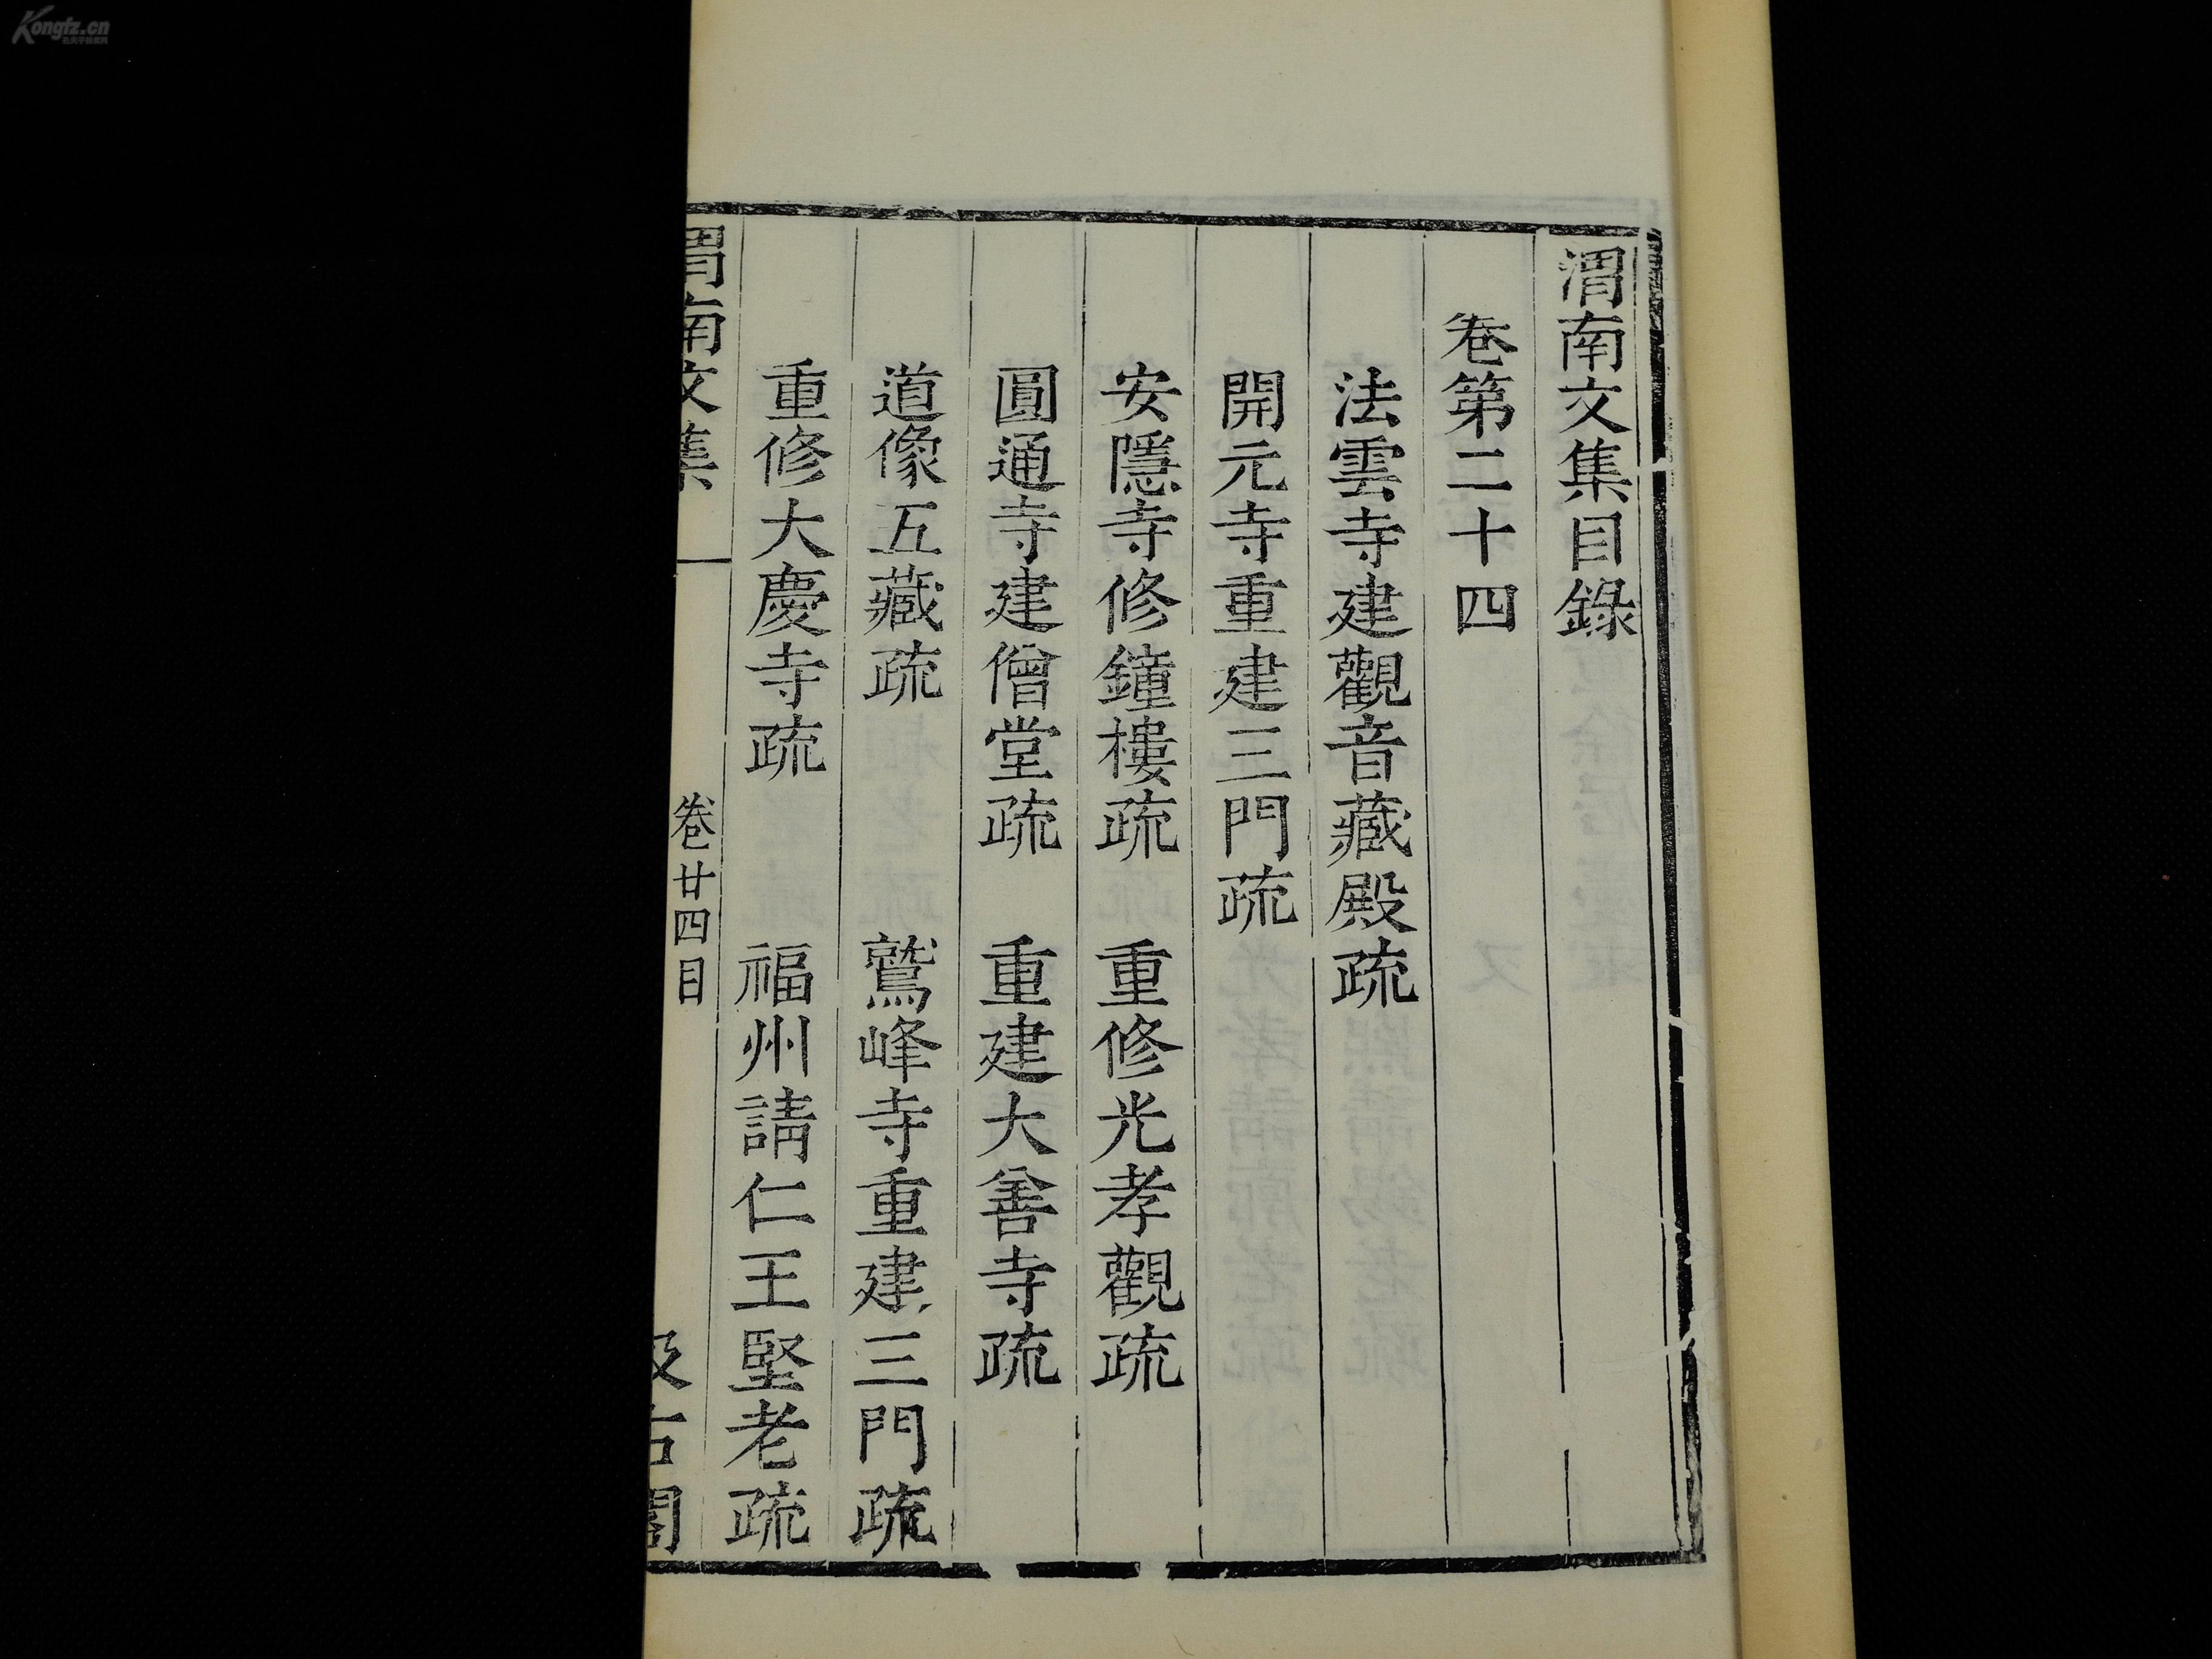 渭南文集目錄
卷第二十四
法雲寺建觀音藏殿疏
開元寺重建三門疏
安隱寺修鐘樓疏 重修光孝觀疏
圓通寺建僧堂疏 重建大善寺疏
道像五藏疏 鷲峰寺重建三門疏
重修大慶寺疏 福州請仁王堅老疏
渭南文集 卷廿四目 汲古閣
Kongfz.cn